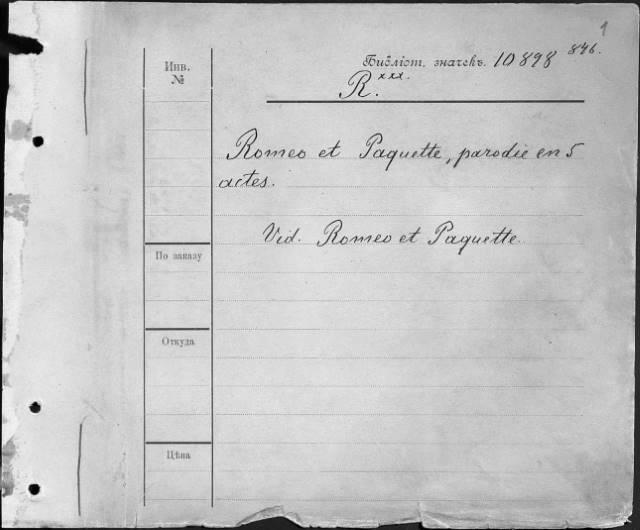 1
Инв.
№
Библіот. значекъ. 10898 846.
R.xxx.
Romeo et Paquette, parodie en 5
actes.
Vid. Romeo et Paquette.
По заказу
Откуда
Цѣна